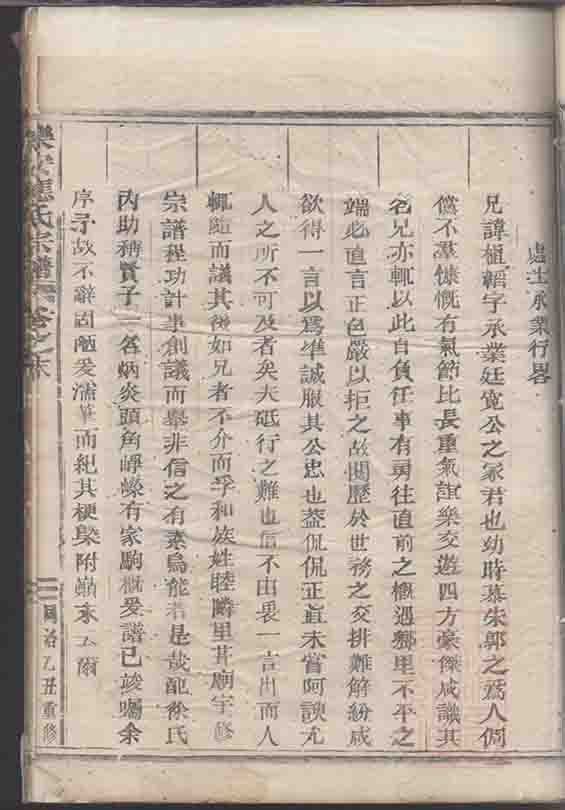 處士承業行畧
兄諱植韜字承業廷寬公之冢君也幼時慕朱郭之為人倜
儻不羣慷慨有氣節比長重氣誼樂交遊四方豪傑咸識其
名兄亦輒以此自負任事有勇往直前之概遇鄉里不平之
端必直言正色嚴以拒之故閱歷於世務之交排難解紛咸
欲得一言以為準誠服其公忠也蓋侃侃正直未嘗阿諛尤
人之所不可及者矣夫砥行之難也信不由衷一言出而人
輒隨而議其後如兄者不介而孚和族姓睦鄰里葺廟宇修
宗譜程功計事創議而舉非信之有素烏能若是哉配徐氏
內助稱賢子二名炳炎頭角崢嶸有家駒概爰譜已竣囑余
序予故不辭固陋爰濡筆而紀其梗槩附巔末云爾
樂安應氏宗譜 卷之末
同治乙丑重修